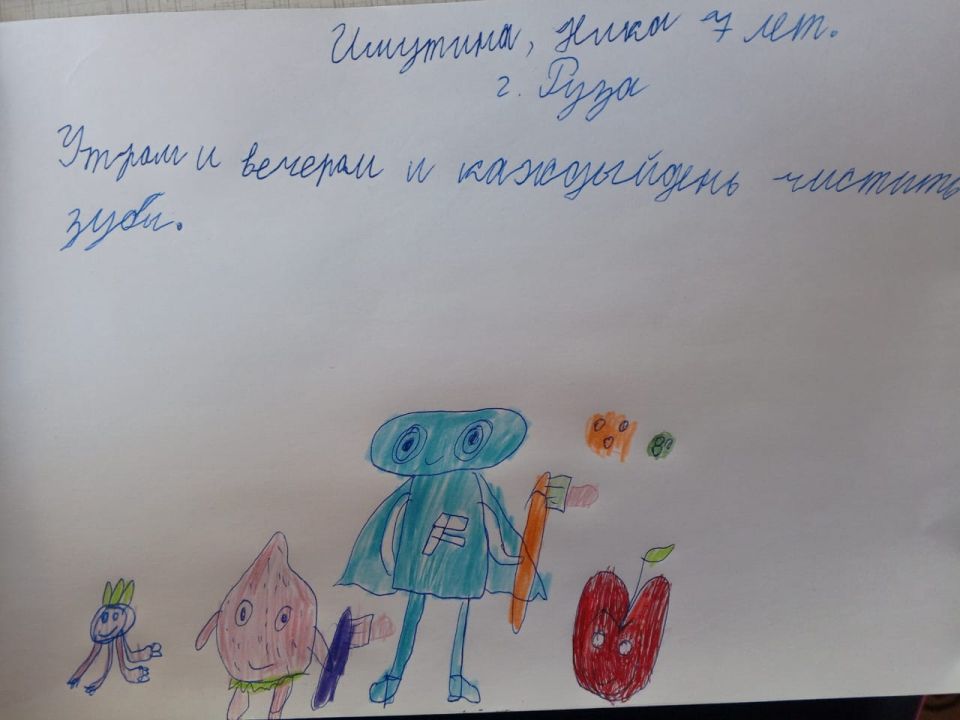 Ишутина, Ника 7 лет.
г. Руза
Утром и вечером и каждыйдень чистить
зубы.
F